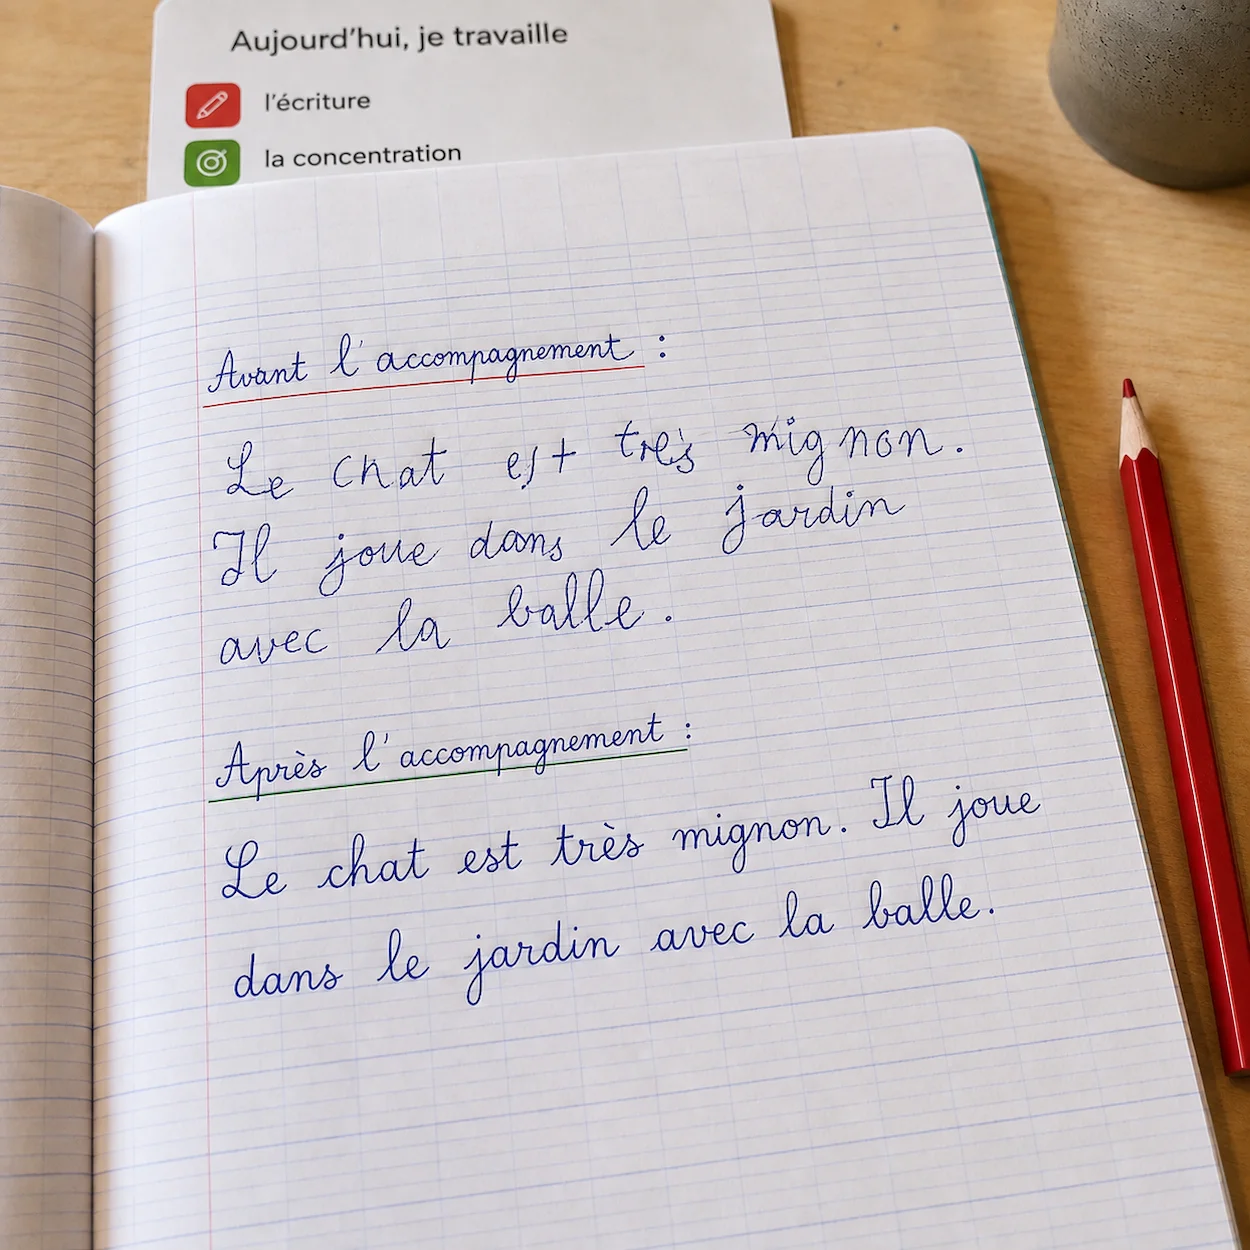 Aujourd'hui, je travaille
l'écriture
la concentration
Avant l'accompagnement :
Le chat est très mignon.
Il joue dans le jardin
avec la balle.
Après l'accompagnement :
Le chat est très mignon. Il joue
dans le jardin avec la balle.